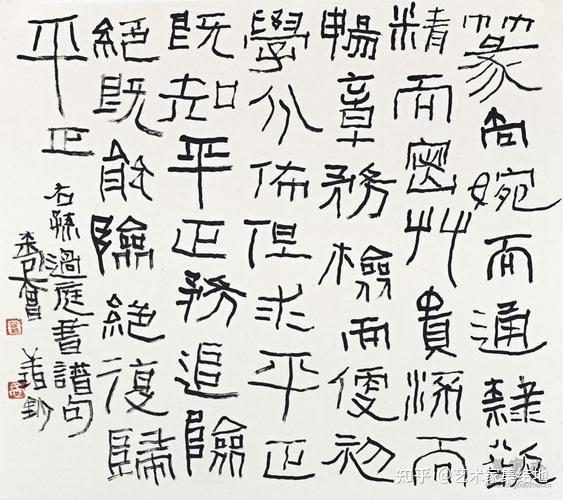 篆尚婉而通隸欲
精而密艸貴流而
暢章務檢而便初
學分佈但求平正
既知平正務追險
絕既能險絕復歸
平正
右孫過庭書譜句
知乎 @艺术家集结地